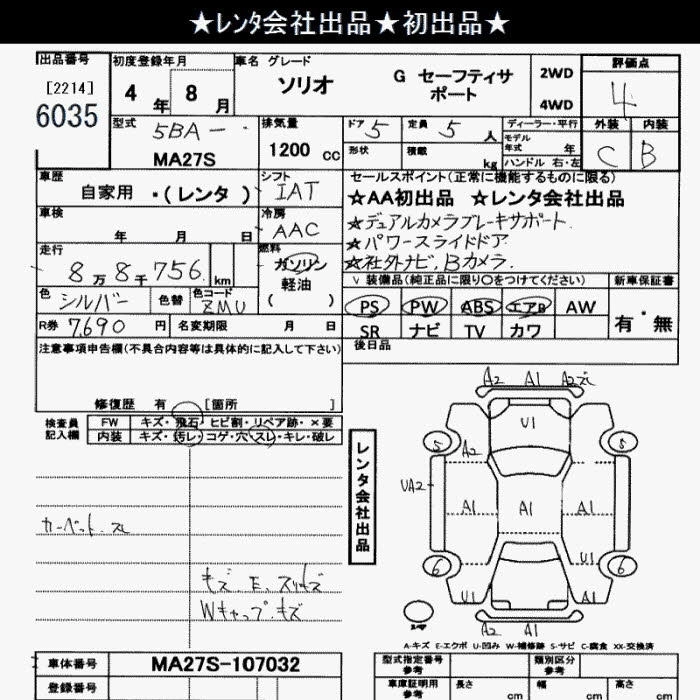 ★レンタ会社出品★初出品★
出品番号 初度登録年月 車名 グレード 評価点
[2214] 4年 8月 ソリオ G セーフティサポート 2WD 4WD 4
6035
型式 排気量 ドア 5 定員 5人 ディーラー・平行 外装 内装
5BA- 形状 積載 kg モデル年式 年 C B
MA27S 1200 cc ハンドル 右・左
車歴 シフト セールスポイント(正常に機能するものに限る)
自家用 ・(レンタ) IAT ★AA初出品 ★レンタ会社出品
車検 冷房 ★デュアルカメラブレーキサポート
年 月 日 AAC ★パワースライドドア
走行 燃料 ★社外ナビ、Bカメラ
8万8千756 km ガソリン 軽油 ( )
∨ 装備品(純正品に限り○をつけてください) 新車保証書
色 シルバー 色替 色コード ZMU
PS PW ABS エアB AW 有・無
R券 7,690円 名変期限 月 日 SR ナビ TV カワ
注意事項申告欄(不具合内容等は具体的に記入して下さい) 後日品
修復歴 有 [箇所 ]
検査員記入欄 FW キズ・飛石・ヒビ割・リペア跡・×要
内装 キズ・汚レ・コゲ・穴・スレ・キレ・破レ
レンタ会社出品
A2 A1 A2
U1
5 A2 5
UA2
A1 A1 A1
6 U1 6
U1 A1
A2 A1
カーペット スレ
キズ
Wキャップ キズ
A-キズ E-エクボ U-凹み W-補修跡 S-サビ C-腐食 XX-交換済
車体番号 MA27S-107032
型式指定番号 参考 類別区分 参考
登録番号 車庫証明用 参考 長さ cm 幅 cm 高さ cm